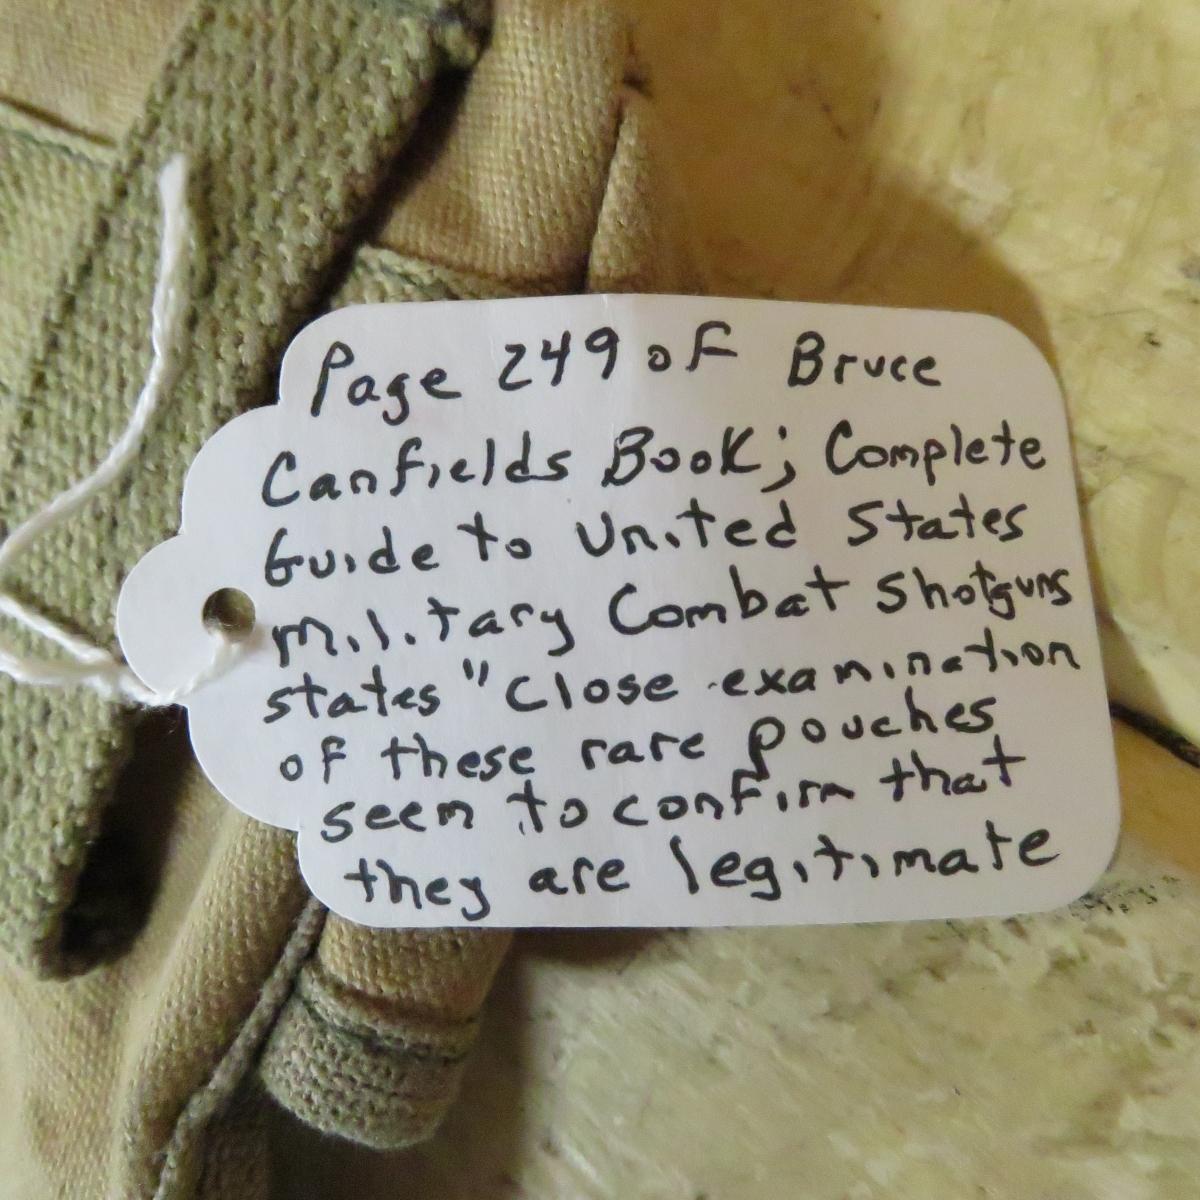 Page 249 of Bruce
Canfields Book; Complete
Guide to United States
Military Combat Shotguns
states "close examination
of these rare pouches
seem to confirm that
they are legitimate